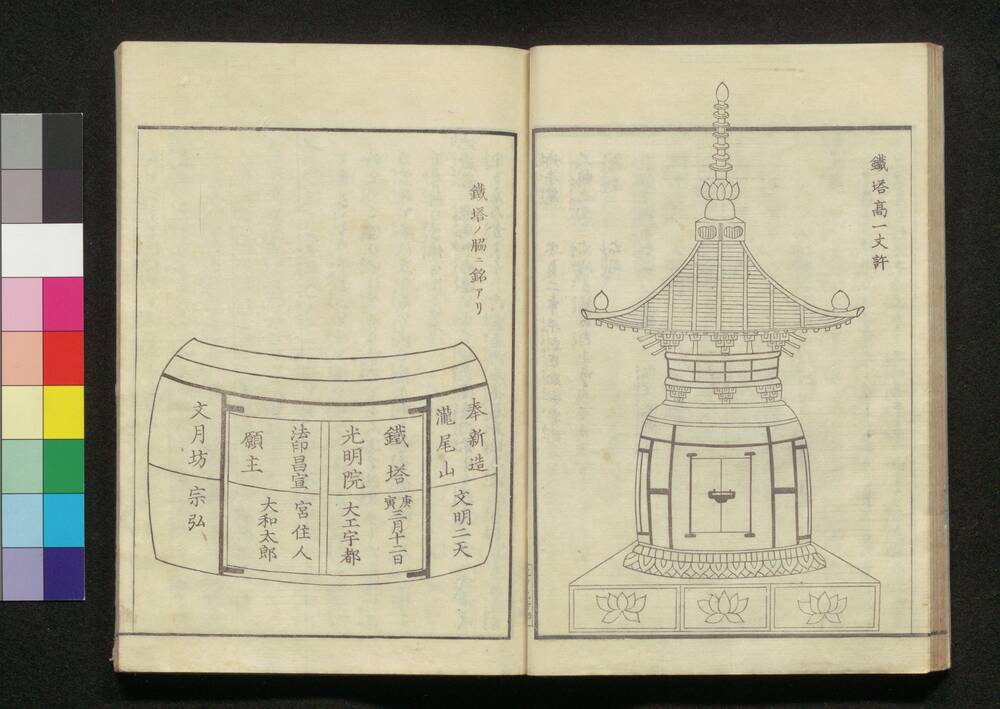 鐵塔高一丈許
鐵塔ノ脇ニ銘アリ
奉新造
瀧尾山
文明二天
鐵塔
庚寅三月十二日
光明院
大工宇都
法印昌宣
宮住人
願主
大和太郎
文月坊
宗弘